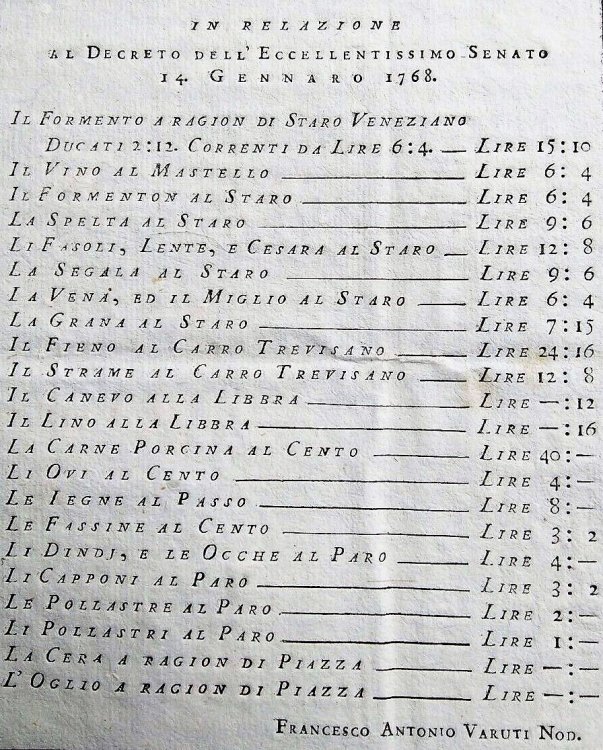 IN RELAZIONE
AL DECRETO DELL'ECCELLENTISSIMO SENATO
14. GENNARO 1768.
IL FORMENTO A RAGION DI STARO VENEZIANO
DUCATI 2:12. CORRENTI DA LIRE 6:4. — LIRE 15:10
IL VINO AL MASTELLO — LIRE 6:4
IL FORMENTON AL STARO — LIRE 6:4
LA SPELTA AL STARO — LIRE 9:6
LI FASOLI, LENTE, E CESARA AL STARO — LIRE 12:8
LA SEGALA AL STARO — LIRE 9:6
LA VENA, ED IL MIGLIO AL STARO — LIRE 6:4
LA GRANA AL STARO — LIRE 7:15
IL FIENO AL CARRO TREVISANO — LIRE 24:16
IL STRAME AL CARRO TREVISANO — LIRE 12:8
IL CANEVO ALLA LIBBRA — LIRE —:12
IL LINO ALLA LIBBRA — LIRE —:16
LA CARNE PORCINA AL CENTO — LIRE 40:—
LI OVI AL CENTO — LIRE 4:—
LE LEGNE AL PASSO — LIRE 8:—
LE FASSINE AL CENTO — LIRE 3:2
LI DINDJ, E LE OCCHE AL PARO — LIRE 4:—
LI CAPPONI AL PARO — LIRE 3:2
LE POLLASTRE AL PARO — LIRE 2:—
LI POLLASTRI AL PARO — LIRE 1:—
LA CERA A RAGION DI PIAZZA — LIRE —:—
L'OGLIO A RAGION DI PIAZZA — LIRE —:—
FRANCESCO ANTONIO VARUTI NOD.